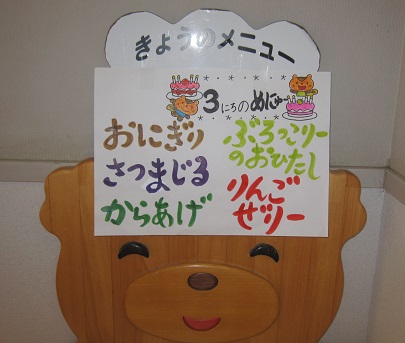 きょうのメニュー
3にちのめにゅー
おにぎり
さつまじる
からあげ
ぶろっこりー
のおひたし
りんご
ぜりー